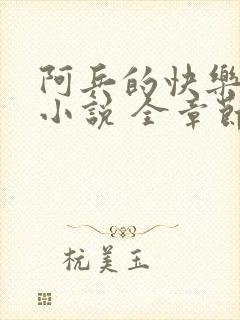 阿兵的快樂
小說 全章節
杭美玉